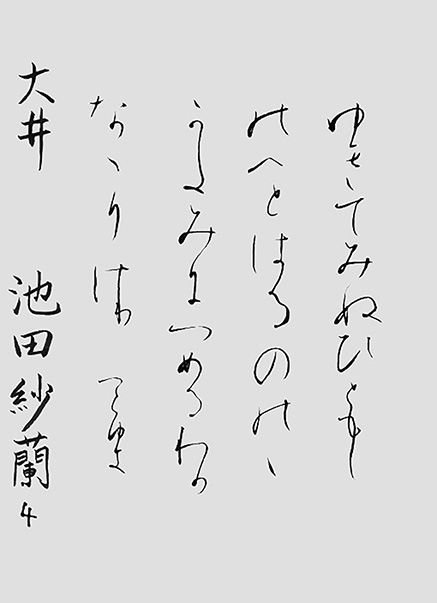 ゆきてみぬひともし
のへとはるののゝ
かたみにつめるわか
なゝりけり つらゆき
大井 池田紗蘭 4